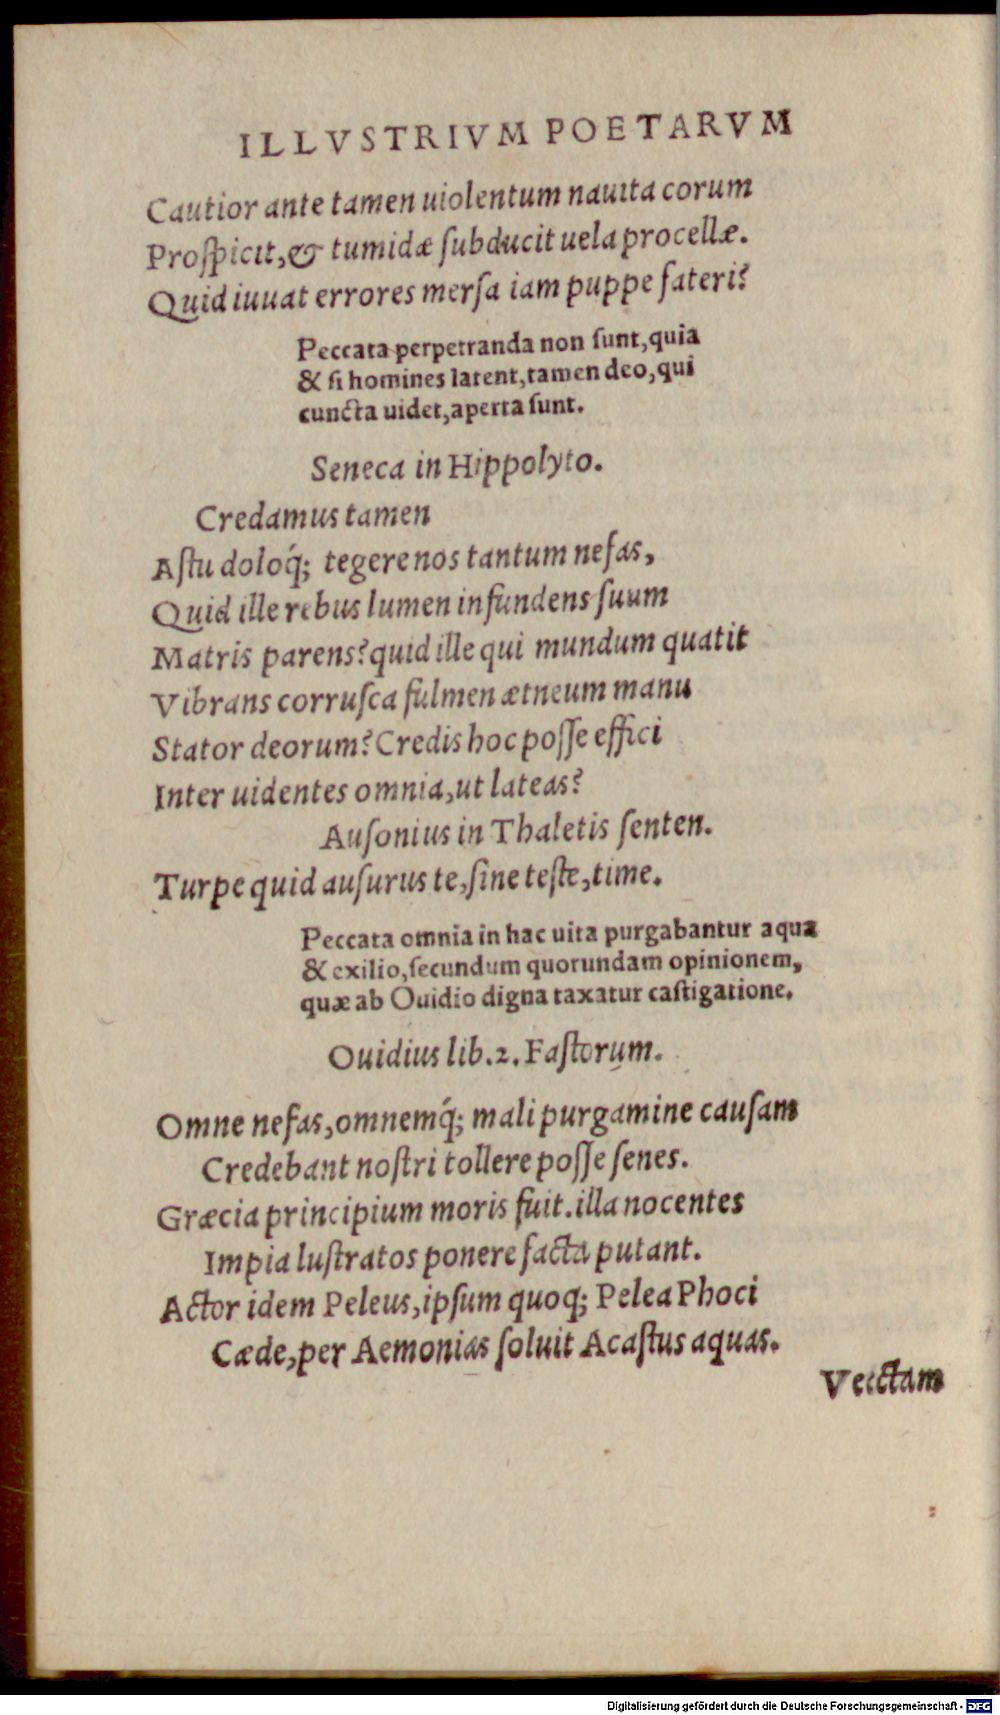 ILLVSTRIVM POETARVM
Cautior ante tamen uiolentum nauita corum
Proſpicit, & tumidæ ſubducit uela procellæ.
Quid iuuat errores merſa iam puppe fateri?
Peccata perpetranda non ſunt, quia
& ſi homines latent, tamen deo, qui
cuncta uidet, aperta ſunt.
Seneca in Hippolyto.
Credamus tamen
Aſtu doloq́; tegere nos tantum nefas,
Quid ille rebus lumen infundens ſuum
Matris parens? quid ille qui mundum quatit
Vibrans corruſca fulmen ætneum manu
Stator deorum? Credis hoc poſſe effici
Inter uidentes omnia, ut lateas?
Auſonius in Thaletis ſenten.
Turpe quid auſurus te, ſine teſte, time.
Peccata omnia in hac uita purgabantur aqua
& exilio, ſecundum quorundam opinionem,
quæ ab Ouidio digna taxatur caſtigatione.
Ouidius lib. 2. Faſtorum.
Omne nefas, omnemq́; mali purgamine cauſam
Credebant noſtri tollere poſſe ſenes.
Græcia principium moris fuit. illa nocentes
Impia luſtratos ponere facta putant.
Actor idem Peleus, ipſum quoq; Pelea Phoci
Cæde, per Aemonias ſoluit Acaſtus aquas.
Vectam
Digitalisierung gefördert durch die Deutsche Forschungsgemeinschaft - DFG